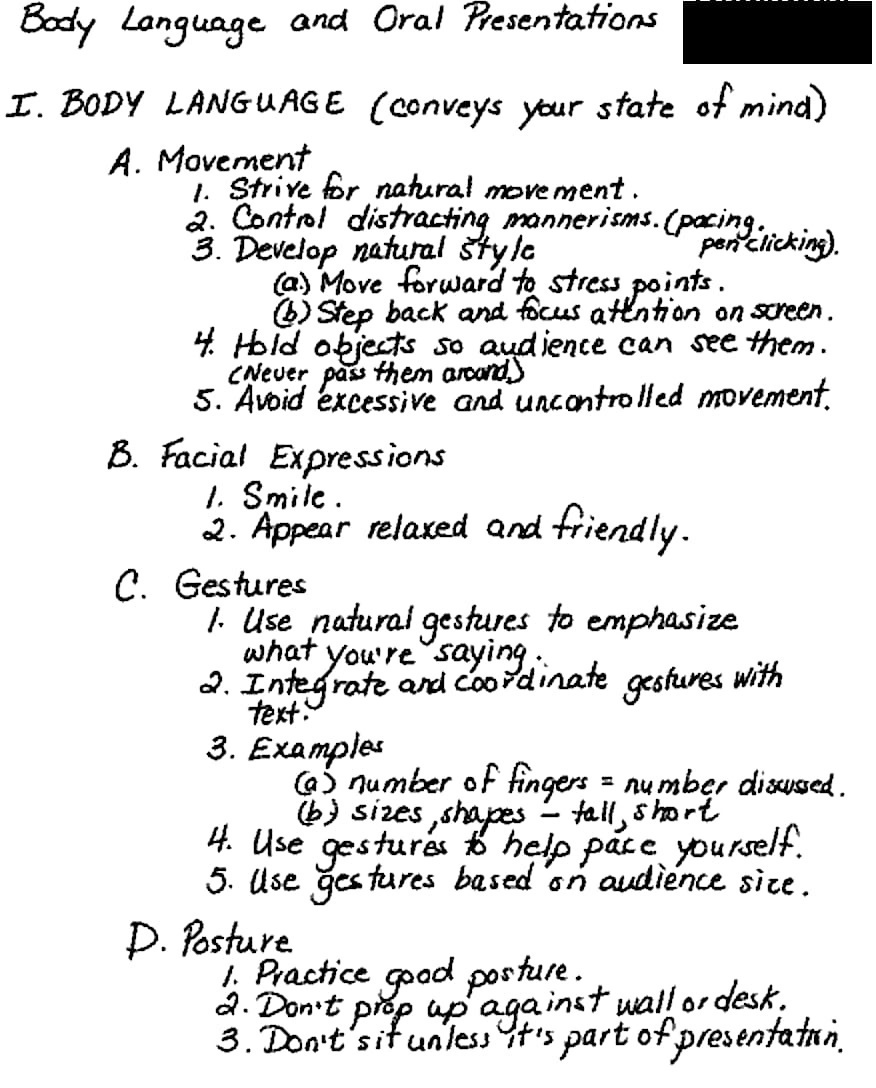 Body Language and Oral Presentations
I. BODY LANGUAGE (conveys your state of mind)
A. Movement
1. Strive for natural movement.
2. Control distracting mannerisms. (pacing,
pen clicking).
3. Develop natural style
(a) Move forward to stress points.
(b) Step back and focus attention on screen.
4. Hold objects so audience can see them.
(Never pass them around.)
5. Avoid excessive and uncontrolled movement.
B. Facial Expressions
1. Smile.
2. Appear relaxed and friendly.
C. Gestures
1. Use natural gestures to emphasize
what you're saying.
2. Integrate and coordinate gestures with
text.
3. Examples
(a) number of fingers = number discussed.
(b) sizes, shapes – tall, short
4. Use gestures to help pace yourself.
5. Use gestures based on audience size.
D. Posture
1. Practice good posture.
2. Don't prop up against wall or desk.
3. Don't sit unless it's part of presentation.